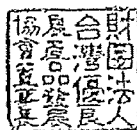 財團法人
台灣優良
農產品發展
協會正章